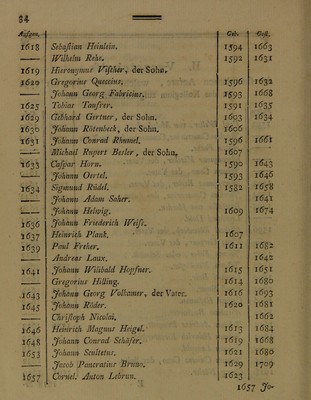 34
Aufgen. Geb. Gest.
1618 Sebastian Heinlein. 1594 1663
—— Wilhelm Rehe. 1592 1631
1619 Hieronymus Vischer, der Sohn.
1620 Gregorius Queccius. 1596 1632
—— Johann Georg Fabritius. 1593 1668
1625 Tobias Taufrer. 1591 1635
1629 Gebhard Gertner, der Sohn. 1603 1634
1630 Johann Rötenbeck, der Sohn. 1606
1631 Johann Conrad Rhumel. 1596 1661
—— Michael Rupert Besler, der Sohn. 1607
1633 Caspar Horn. 1590 1643
—— Johann Oertel. 1593 1646
1634 Sigmund Rüdel. 1582 1658
—— Johann Adam Saher. 1641
—— Johann Helwig. 1609 1674
1636 Johann Friederich Weiss.
1637 Heinrich Plank. 1607
1639 Paul Freher. 1611 1682
—— Andreas Laux. 1642
1641 Johann Wilibald Hopfner. 1615 1651
—— Gregorius Hilling. 1614 1680
1643 Johann Georg Volkamer, der Vater. 1616 1693
1645 Johann Röder. 1620 1681
—— Christoph Nicolai. 1662
1646 Heinrich Magnus Heigel. 1613 1684
1648 Johann Conrad Schäfer. 1619 1668
1653 Johann Scultetus. 1621 1680
—— Jacob Pancratius Bruno. 1629 1709
1657 Cornel. Anton Lebrun. 1623
1657 Jo-